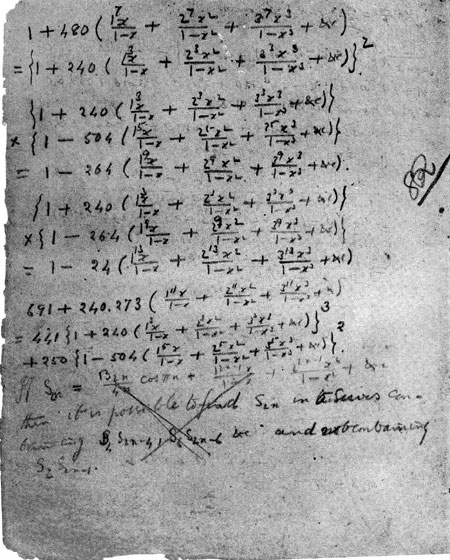 1 + 480 ( 1⁷x/1-x + 2⁷x²/1-x² + 3⁷x³/1-x³ + &c )
= { 1 + 240 ( 1³x/1-x + 2³x²/1-x² + 3³x³/1-x³ + &c ) }²
{ 1 + 240 ( 1³x/1-x + 2³x²/1-x² + 3³x³/1-x³ + &c ) }
× { 1 - 504 ( 1⁵x/1-x + 2⁵x²/1-x² + 3⁵x³/1-x³ + &c ) }
= 1 - 264 ( 1⁹x/1-x + 2⁹x²/1-x² + 3⁹x³/1-x³ + &c ).
{ 1 + 240 ( 1³x/1-x + 2³x²/1-x² + 3³x³/1-x³ + &c ) }
× { 1 - 264 ( 1⁹x/1-x + 2⁹x²/1-x² + 3⁹x³/1-x³ + &c ) }
= 1 - 24 ( 1¹³x/1-x + 2¹³x²/1-x² + 3¹³x³/1-x³ + &c )
691 + 240.273 ( 1¹¹x/1-x + 2¹¹x²/1-x² + 3¹¹x³/1-x³ + &c )
= 441 { 1 + 240 ( 1³x/1-x + 2³x²/1-x² + 3³x³/1-x³ + &c ) }³
+ 250 { 1 - 504 ( 1⁵x/1-x + 2⁵x²/1-x² + 3⁵x³/1-x³ + &c ) }²
If S₂ₙ = B₂ₙ/4n cos πn + + + &c
then it is possible to find S₂ₙ in terms con
taining S₂ₙ₋₄, S₆ S₂ₙ₋₆ &c and not containing
S₂